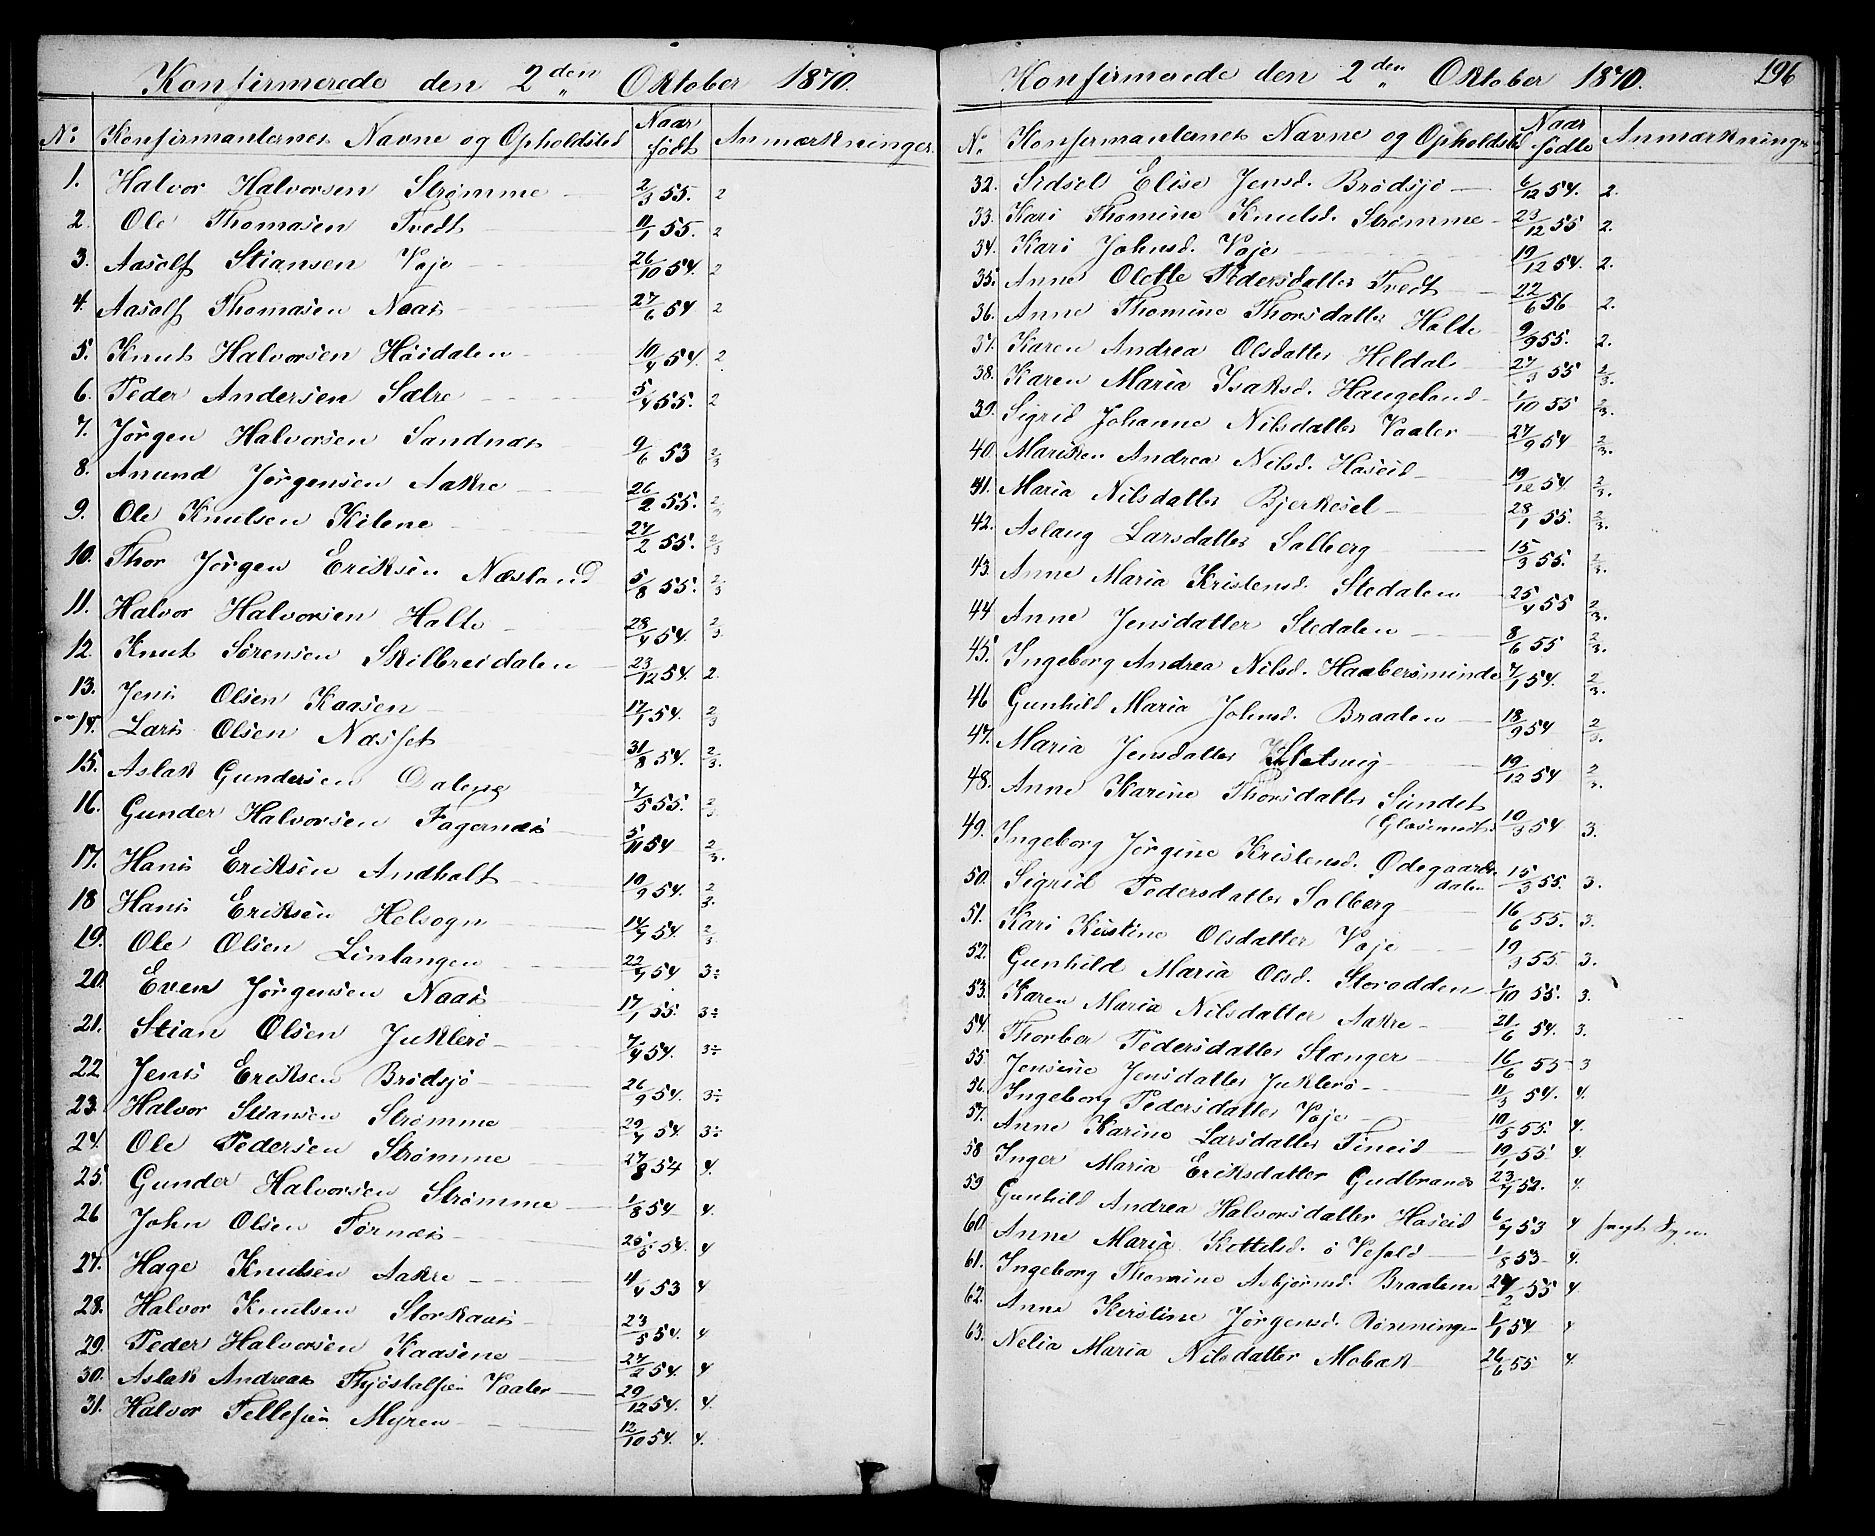 Konfirmerede den 2den Oktober 1870.
No Konfirmanternes Navne og Opholdsted Naar født Anmærkninger
1. Halvor Halvorsen Strømme 2/3 55. 2
2. Ole Thomasen Tvedt 11/1 55. 2
3. Aasolf Stiansen Vaje 26/10 54. 2
4. Aasolf Thomasen Naas 27/6 54 2
5. Knut Halvorsen Høidalen 10/4 54. 2.
6. Peder Andersen Salre 5/4 55. 2
7. Jørgen Halvorsen Sandnæs 9/6 53 2/3
8. Anund Jørgensen Aakre 26/2 55. 2/3
9. Ole Knutsen Kilene 27/2 55. 2/3
10. Thor Jørgen Eriksen Næsland 5/8 55. 2/3
11. Halvor Halvorsen Holte 28/4 54. 2/3
12. Knut Sørensen Skilbreidalen 23/12 54. 2.
13. Jens Olsen Kaasen 17/1 54. 2/3
14. Lars Olsen Næsset 31/8 54. 2/3.
15. Aslak Gundersen Dalene 7/5 55. 2/3.
16. Gunder Halvorsen Fagernæs 5/11 54 2/3.
17. Hans Eriksen Andholt 10/9 54. 2/3.
18 Hans Eriksen Helsogn 14/7 54. 2/3
19. Ole Olsen Lintangen 22/9 54 3÷
20. Even Jørgensen Naas 17/1 55. 3÷
21. Stian Olsen Juklerø 7/4 54. 3÷
22 Jens Eriksen Brødsjø 26/9 54. 3÷
23. Halvor Stiansen Strømme 29/7 54. 3÷
24. Ole Pedersen Strømme 27/8 54 4.
25. Gunder Halvorsen Strømme 1/8 54 4.
26 John Olsen Førnæs 25/5 54. 4
27. Hage Knutsen Aakre 4/4 53 4
28. Halvor Knutsen Storkaas 23/5 54. 4
29. Peder Halvorsen Kaasene 27/2 54. 4
30. Aslak Andreas Thjøstalfsen Vaaler 29/12 54. 4.
31. Halvor Tellefsen Myren 12/10 54. 4.
Konfirmerede den 2den Oktober 1870. 196
No Konfirmanternes Navne og Opholdsted Naar fødte Anmærkninger
32. Sidsel Elise Jensd. Brødsjø 6/12 54. 2.
33. Kari Thomine Knutsd. Strømme 23/12 55 2.
34. Kari Johnsd. Vaje 19/12 54. 2.
35. Anne Olette Pedersdatter Tvedt 22/6 56 2.
36. Anne Thomine Thorsdatter Holte 9/9 55. 2.
37. Karen Andrea Olsdatter Heldal 27/3 55 2/3.
38. Karen Maria Isaksd. Haugeland 1/10 55 2/3.
39. Sigrid Johanne Nilsdatter Vaaler 27/9 54 2/3.
40. Mariken Andrea Nilsd. Haseid 19/12 54. 2/3.
41. Maria Nilsdatter Bjerkesel 28/1 55. 2/3.
42. Aslaug Larsdatter Solberg 15/3 55. 2/3.
43. Anne Maria Kristensd. Stedalen 25/4 55 2/3.
44 Anne Jensdatter Stedalen 8/6 55 2/3.
45. Ingeborg Andrea Nilsd. Haabersminde 7/1 54. 2/3.
46 Gunhild Maria Johnsd. Braaten 18/9 54 2/3.
47. Maria Jensdatter Kletsvig 19/12 54 2/3.
48. Anne Karine Thorsdatter Sundet
(Glasmest. 10/3 54 3.
49. Ingeborg Jørgine Kristensd. Ødegaards-
dalen 15/3 55. 3.
50. Sigrid Pedersdatter Solberg 16/6 55. 3.
51. Kari Kristine Olsdatter Vaje 19/3 55. 3.
52. Gunhild Maria Olsd. Storodden 1/10 55. 3.
53. Karen Maria Nilsdatter Aakre 21/6 54. 3.
54. Thorber Pedersdatter Stænger 16/6 55 3
55. Jensine Jensdatter Juklerø 11/3 54. 4.
56. Ingeborg Pedersdatter Vaje 10/5 55. 4.
57. Anne Karine Larsdatter Fineid 19/1 55. 4.
58 Inger Maria Eriksdatter Gudbrands 23/7 52. 4.
59 Gunhild Andrea Halvorsdatter Haseid 6/7 53 4
60. Anne Maria Kittilsd. i Vefald 1/8 53 4.
61. Ingeborg Thomine Asbjørnsd. Braatene 24/2 55 4
62. Anne Kirstine Jørgensd. Rønningen 1/1 54 4
63. Nelia Maria Nilsdatter Mobæk 26/6 55 4.